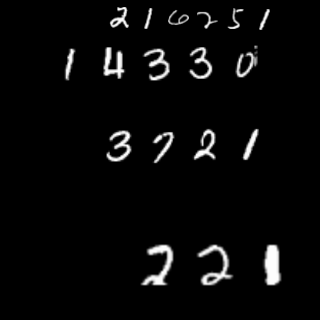 216251
14330
3721
221